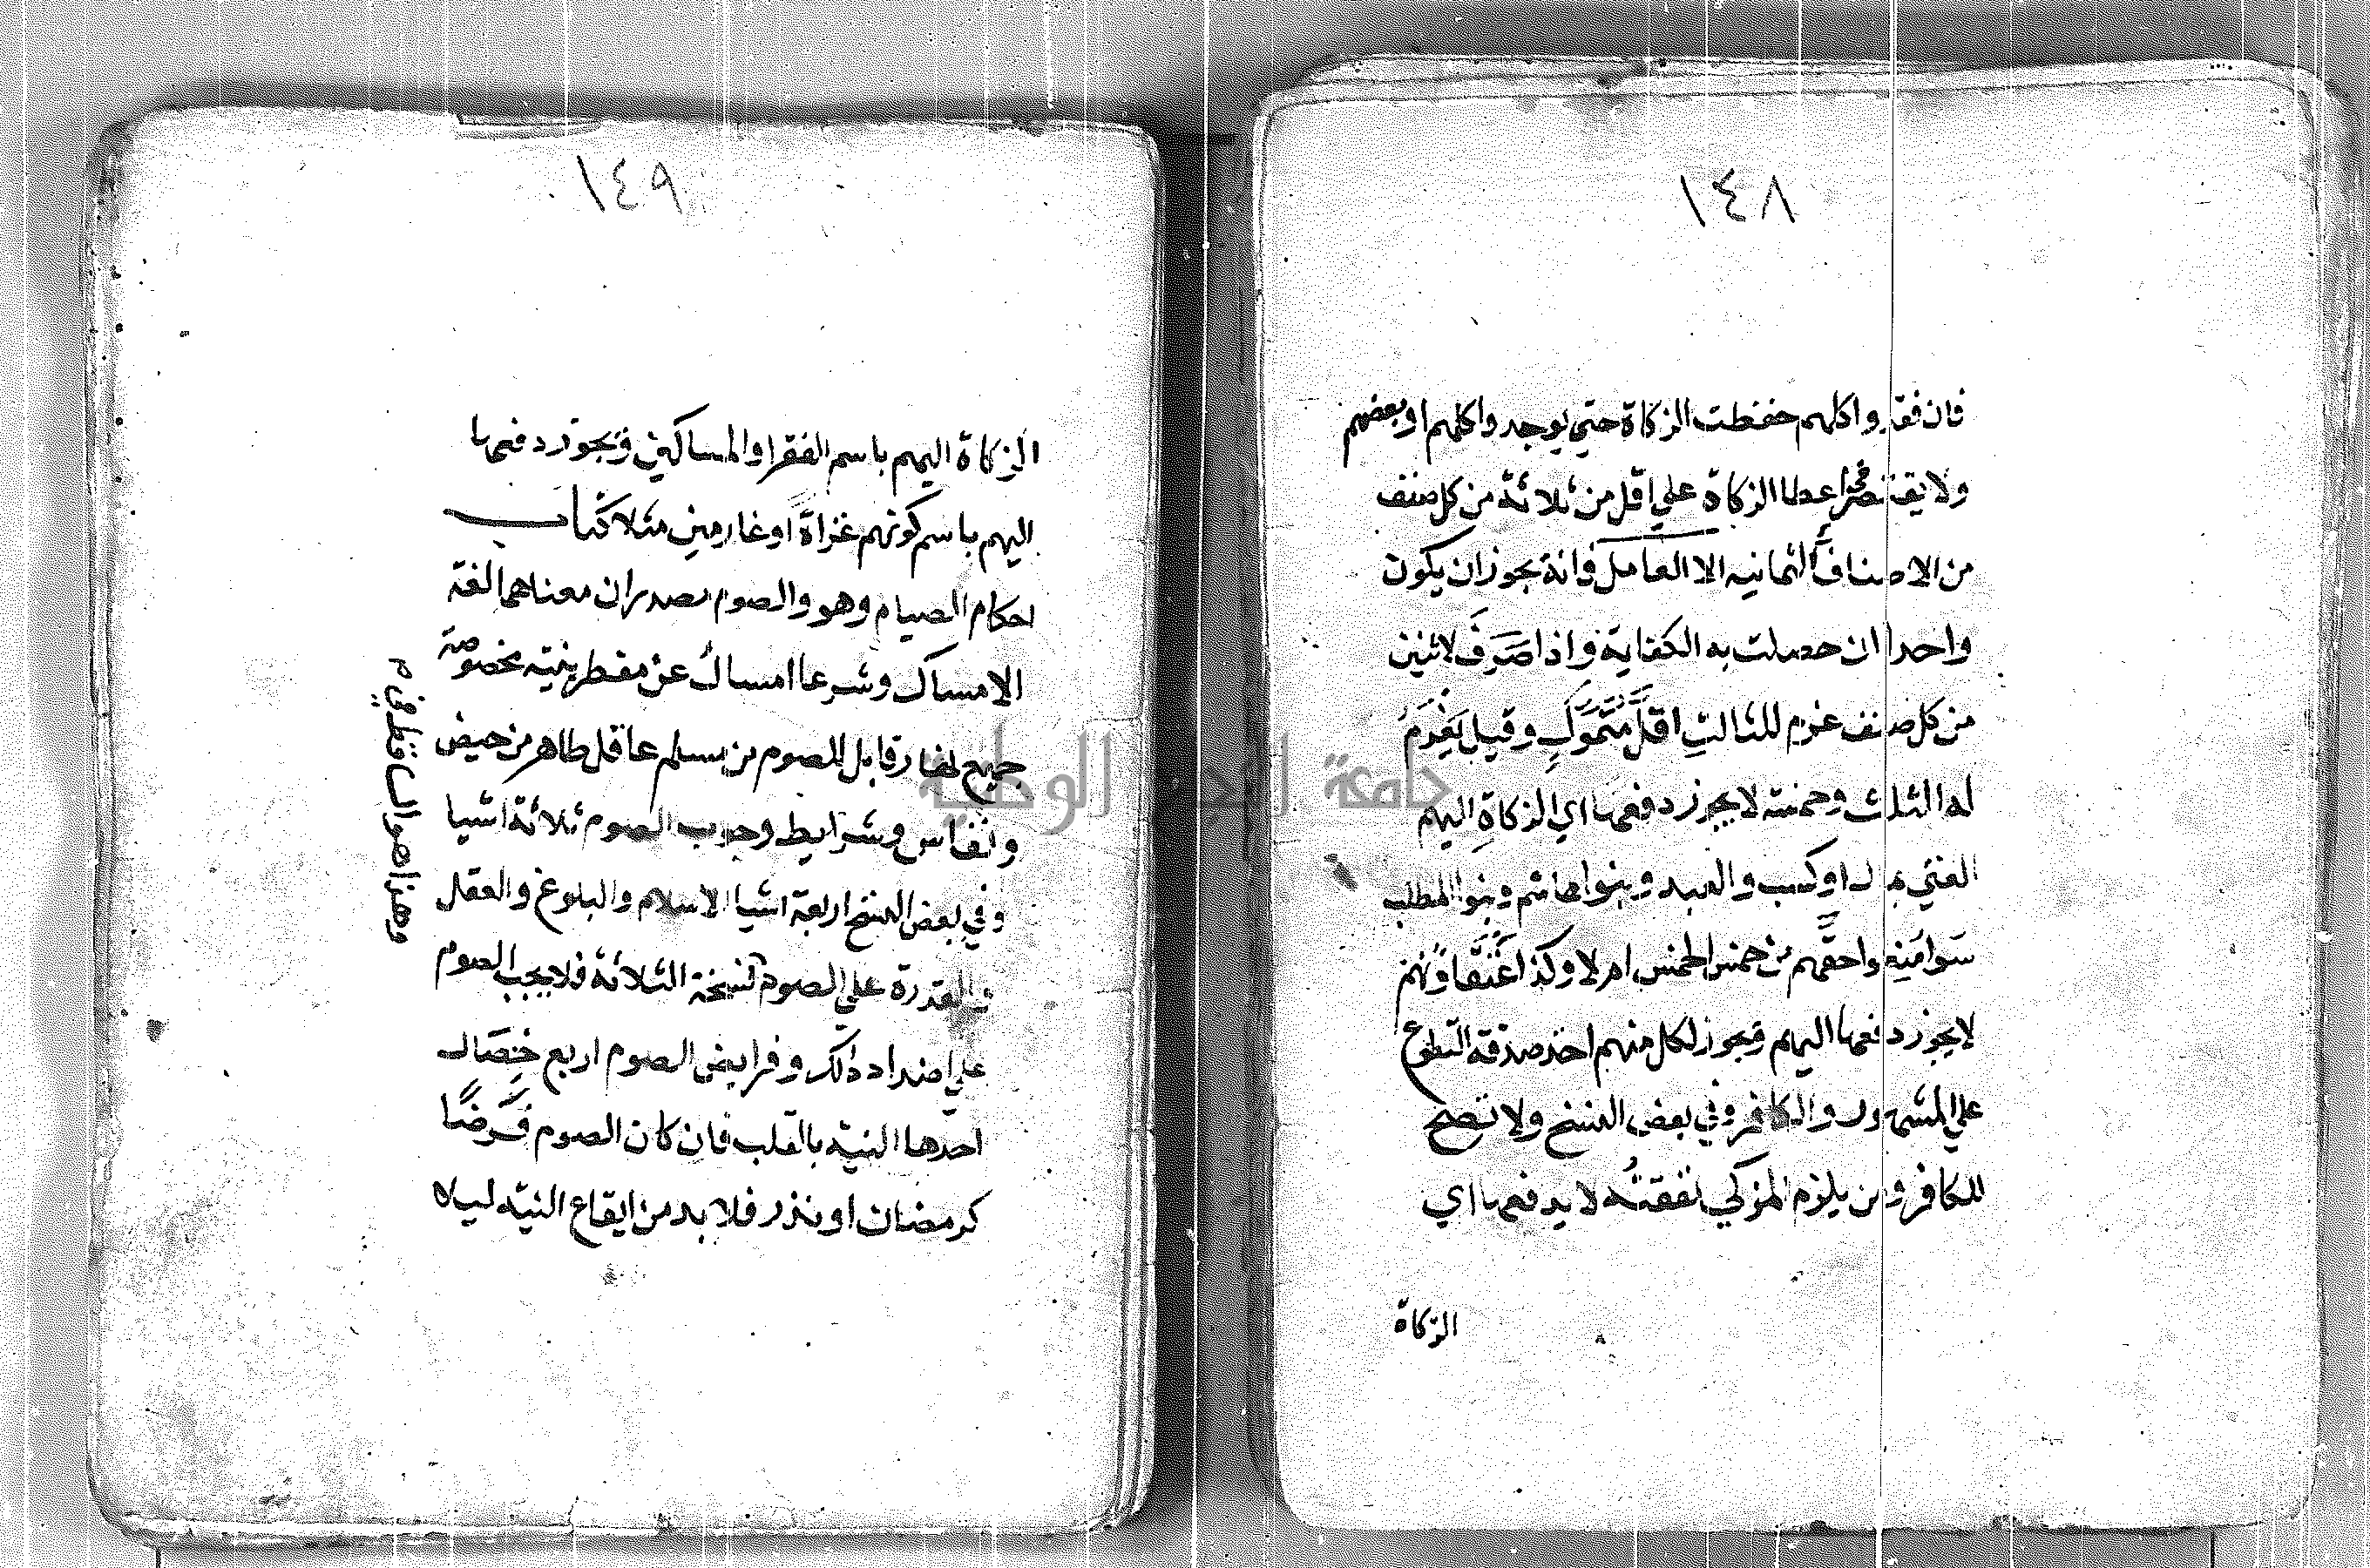 ١٤٨
فان فقدوا كلهم حفظت الزكاة حتي يوجدوا كلهم او بعضهم
ولا يقتصر في اعطا الزكاة علي اقل من ثلاثة من كل صنف
من الاصناف الثمانيه الا العامل فانه يجوز ان يكون
واحدا ان حصلت به الكفاية واذا صرف لاثنين
من كل صنف غرم للثالث اقل متمول وقيل يغرم
له الثلث وخمسة لا يجوز دفعها اي الزكاة اليهم
الغني بمال او كسب والعبد وبنوا هاشم وبنوا المطلب
سوا منعوا حقهم من خمس الخمس ام لا وكذا عتقاوهم
لا يجوز دفعها اليهم ويجوز لكل منهم اخذ صدقة التطوع
علي المشهور والكافر وفي بعض النسخ ولا تصح
للكافر ومن يلزم المزكي نفقته لا يدفعها اي
الزكاة
١٤٩
الزكاة اليهم باسم الفقرا والمساكين ويجوز دفعها
اليهم باسم كونهم غزاة او غارمين مثلا كتاب
احكام الصيام وهو والصوم مصدران معناهما لغة
الامساك وشرعا امساك عن مفطر بنيته مخصوصة
جميع نهار قابل للصوم من مسلم عاقل طاهر من حيض
ونفاس وشرايط وجوب الصوم ثلاثة اشيا
وفي بعض النسخ اربعة اشيا الاسلام والبلوغ والعقل
والقدرة علي الصوم نسخة الثلاثة فلا يجب الصوم
علي اضداد ذلك وفرايض الصوم اربع خصال
احدها النيه بالقلب فان كان الصوم فرضا
كرمضان او نذر فلا بد من ايقاع النيه ليلا